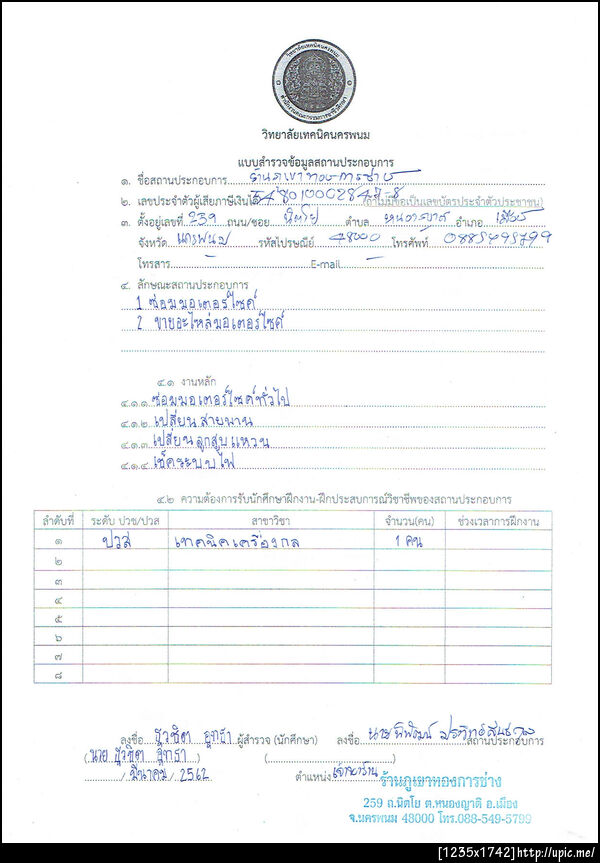 วิทยาลัยเทคนิคนครพนม
สำนักงานคณะกรรมการการอาชีวศึกษา
วิทยาลัยเทคนิคนครพนม
แบบสำรวจข้อมูลสถานประกอบการ
๑. ชื่อสถานประกอบการ ร้านภูเขาทองการช่าง
๒. เลขประจำตัวผู้เสียภาษีเงินได้ (ถ้าไม่มีขอเป็นเลขบัตรประจำตัวประชาชน)
๓. ตั้งอยู่เลขที่ 259 ถนน/ซอย นิตโย ตำบล หนองญาติ อำเภอ เมือง
จังหวัด นครพนม รหัสไปรษณีย์ 48000 โทรศัพท์ 0885495799
โทรสาร - E-mail -
๔. ลักษณะสถานประกอบการ
1 ซ่อมมอเตอร์ไซค์
2 ขายอะไหล่มอเตอร์ไซค์
๔.๑ งานหลัก
๔.๑.๑ ซ่อมมอเตอร์ไซค์ทั่วไป
๔.๑.๒ เปลี่ยนสายพาน
๔.๑.๓ เปลี่ยนลูกสูบแหวน
๔.๑.๔ เช็คระบบไฟ
๔.๒ ความต้องการรับนักศึกษาฝึกงาน-ฝึกประสบการณ์วิชาชีพของสถานประกอบการ
ลำดับที่ ระดับ ปวช/ปวส สาขาวิชา จำนวน(คน) ช่วงเวลาการฝึกงาน
๑ ปวส เทคนิคเครื่องกล 1 คน
๒
๓
๔
๕
๖
๗
๘
ลงชื่อ ผู้สำรวจ (นักศึกษา) ลงชื่อ นายพิพัฒน์ สถานประกอบการ
(นาย ) ( )
/ มีนาคม / 2562 ตำแหน่ง เจ้าของร้าน
ร้านภูเขาทองการช่าง
259 ถ.นิตโย ต.หนองญาติ อ.เมือง
จ.นครพนม 48000 โทร.088-549-5799
[1235x1742]http://upic.me/